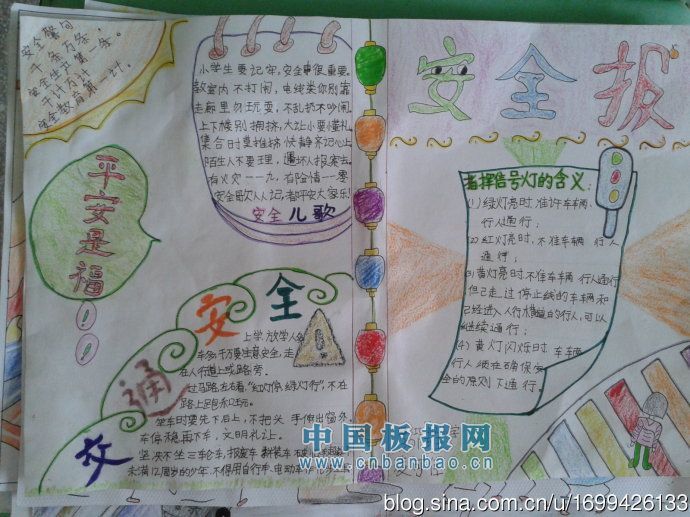 安全警句
千条万条,
安全生产第一条。
千计万计
安全教育第一计。
平安是福
小学生要记牢,安全事很重要。
教室内不打闹,电线类你别靠
走廊里勿玩耍,不乱扔不吵闹
上下楼别拥挤,大让小要懂礼
集合时莫推挤快静齐记心上
陌生人不要理,遇坏人报案去。
有火灾一一九,有险情一一零
安全歌人人记,者平安大家乐!
安全儿歌
安全报
指挥信号灯的含义:
(1)绿灯亮时,准许车辆、
行人通行;
(2)红灯亮时,不准车辆 行人
通行;
(3)黄灯亮时,不准车辆 行人通行
但已走过停止线的车辆和
已经进入人行横道的行人,可以
继续通行;
(4)黄灯闪烁时,车辆
行人须在确保安
全的原则下通行。
交通安全
上学,放学人
车多,千万要注意安全,走
在人行道上或路旁。
过马路,左右看,“红灯停,绿灯行”,不在
路上跑和玩。
坐车时要先下后上,不把头 手伸出窗外。
车停稳再下车,文明礼让。
坚决不坐三轮车,报废车
未满12周岁的少年,不得用自行车、电动车
中国板报网
www.cnbanbao.cn
blog.sina.com.cn/u/1699426133